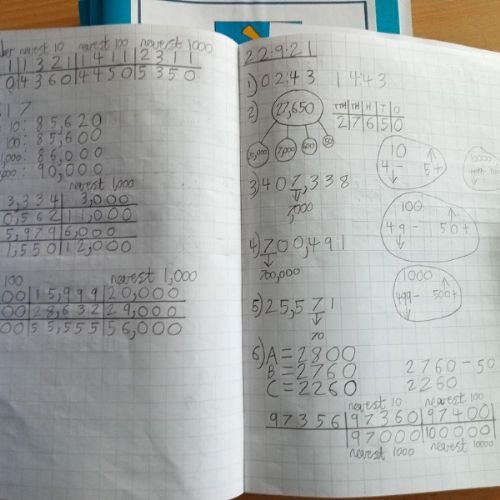 nearest 10 nearest 100 nearest 1000
1 1 3 2 1 1 4 1 1 2 3 1 1
0 4 3 6 0 4 4 5 0 5 3 5 0
17
10: 85,620
100: 85,600
,000: 86,000
000: 90,000
nearest 1,000
3,334 3,000
0,562 11,000
5,979 6,000
1,550 12,000
100 nearest 1,000
00 15,999 20,000
00 28,632 29,000
00 55,555 56,000
22.9.21
1) 02:43 14:43
2) 27,650
TTH TH H T O
2 7 6 5 0
20,000 7,000 600 50
3) 407,338
7,000
4) 700,491
700,000
5) 25,571
70
6) A = 2800
B = 2760
C = 2260
2760 - 50
2260
10
4- 5+
100
49- 50+
1000
499- 500+
10000
nearest 10 nearest 100
97356 97360 97400
97000 100000
nearest 1000 nearest 10000